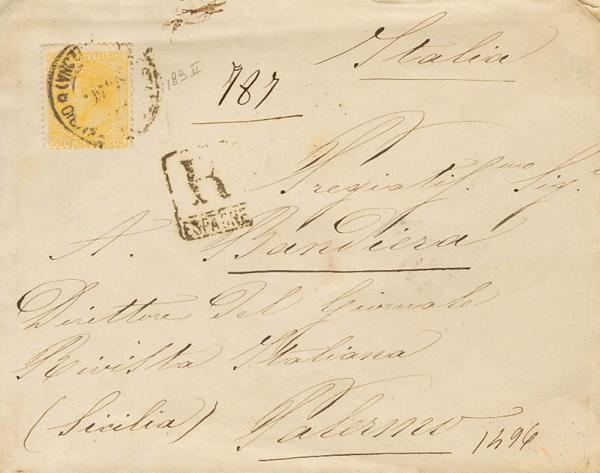 Italia
787
189 II
R
ESPAGNE
Pregiatiss.mo Sig.
A. Bandiera
Direttore del Giornale
Rivista Italiana
(Sicilia) Palermo
1496